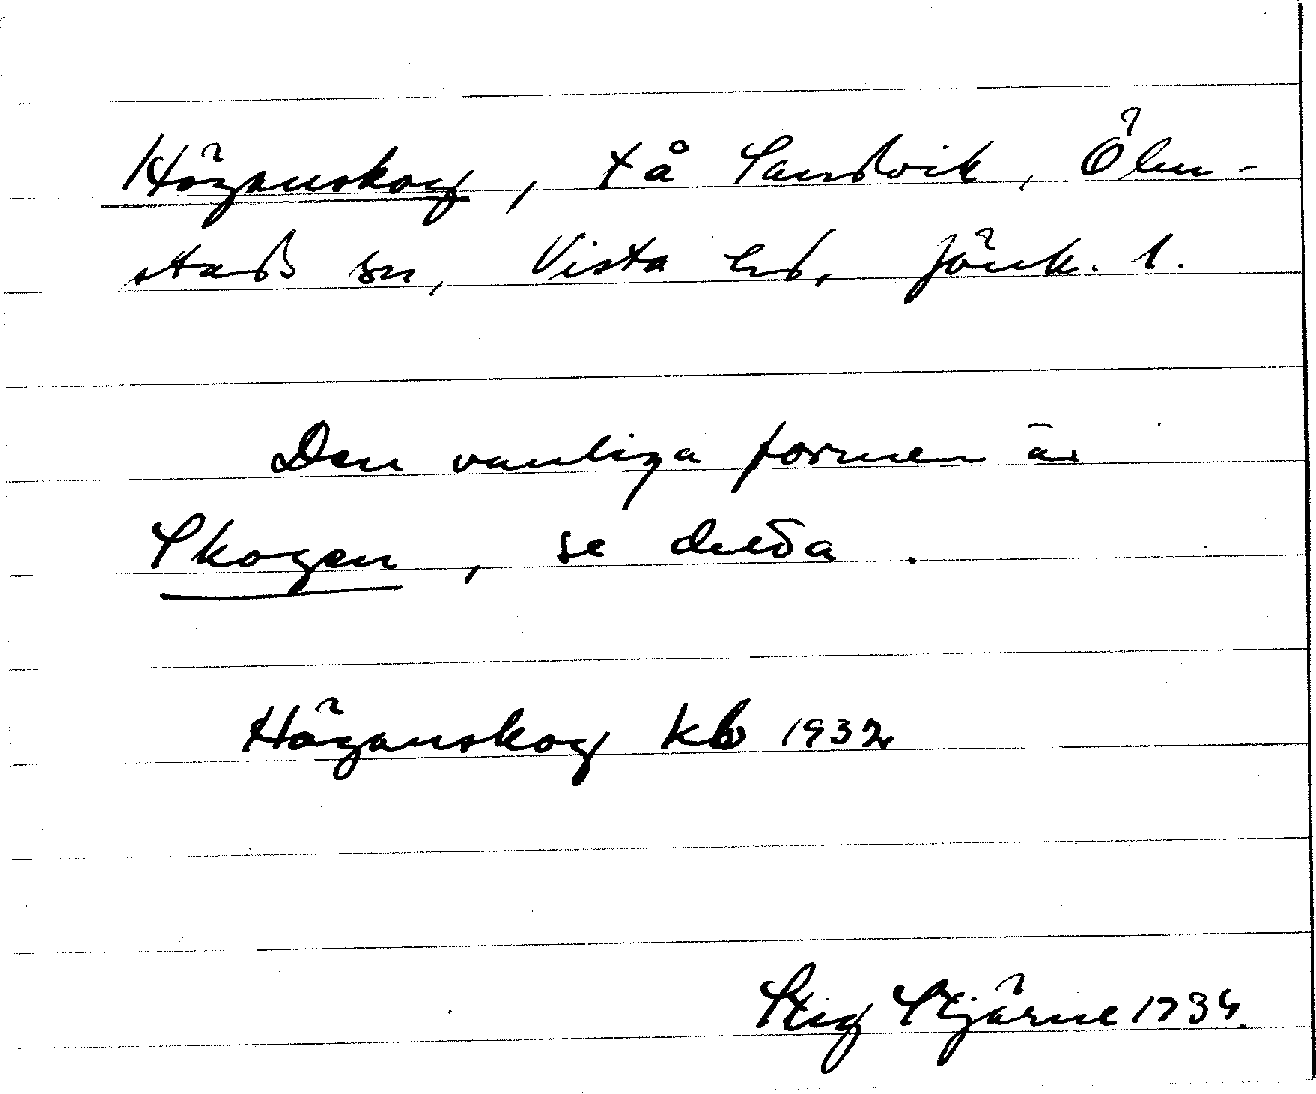 Höganskog, t å Sandvik, Ölm-
stads sn, Vista hd, Jönk. l.
Den vanliga formen är
Skogen, se detta.
Höganskog kb 1932
Stig Stjärne 1934.